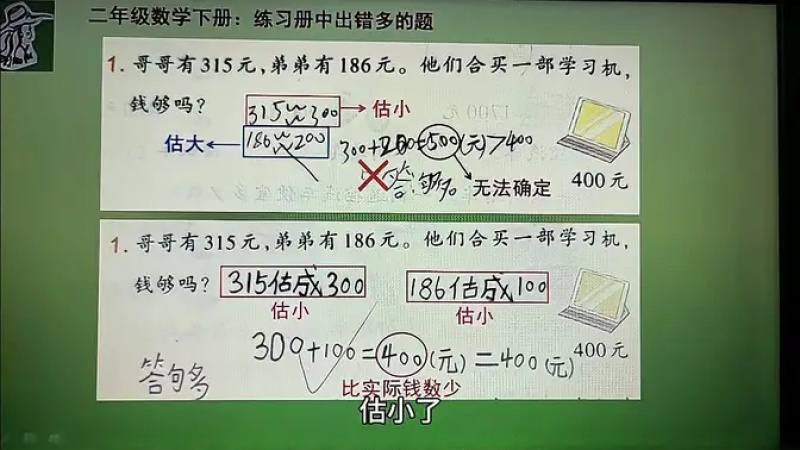 二年级数学下册：练习册中出错多的题
1. 哥哥有315元,弟弟有186元。他们合买一部学习机,
钱够吗?
315≈300
估小
估大
186≈200
300+200=500(元)>400
答:够
无法确定
400元
1. 哥哥有315元,弟弟有186元。他们合买一部学习机,
钱够吗?
315估成300
186估成100
估小
估小
300+100=400(元)=400(元)
400元
答句多
比实际钱数少
估小了